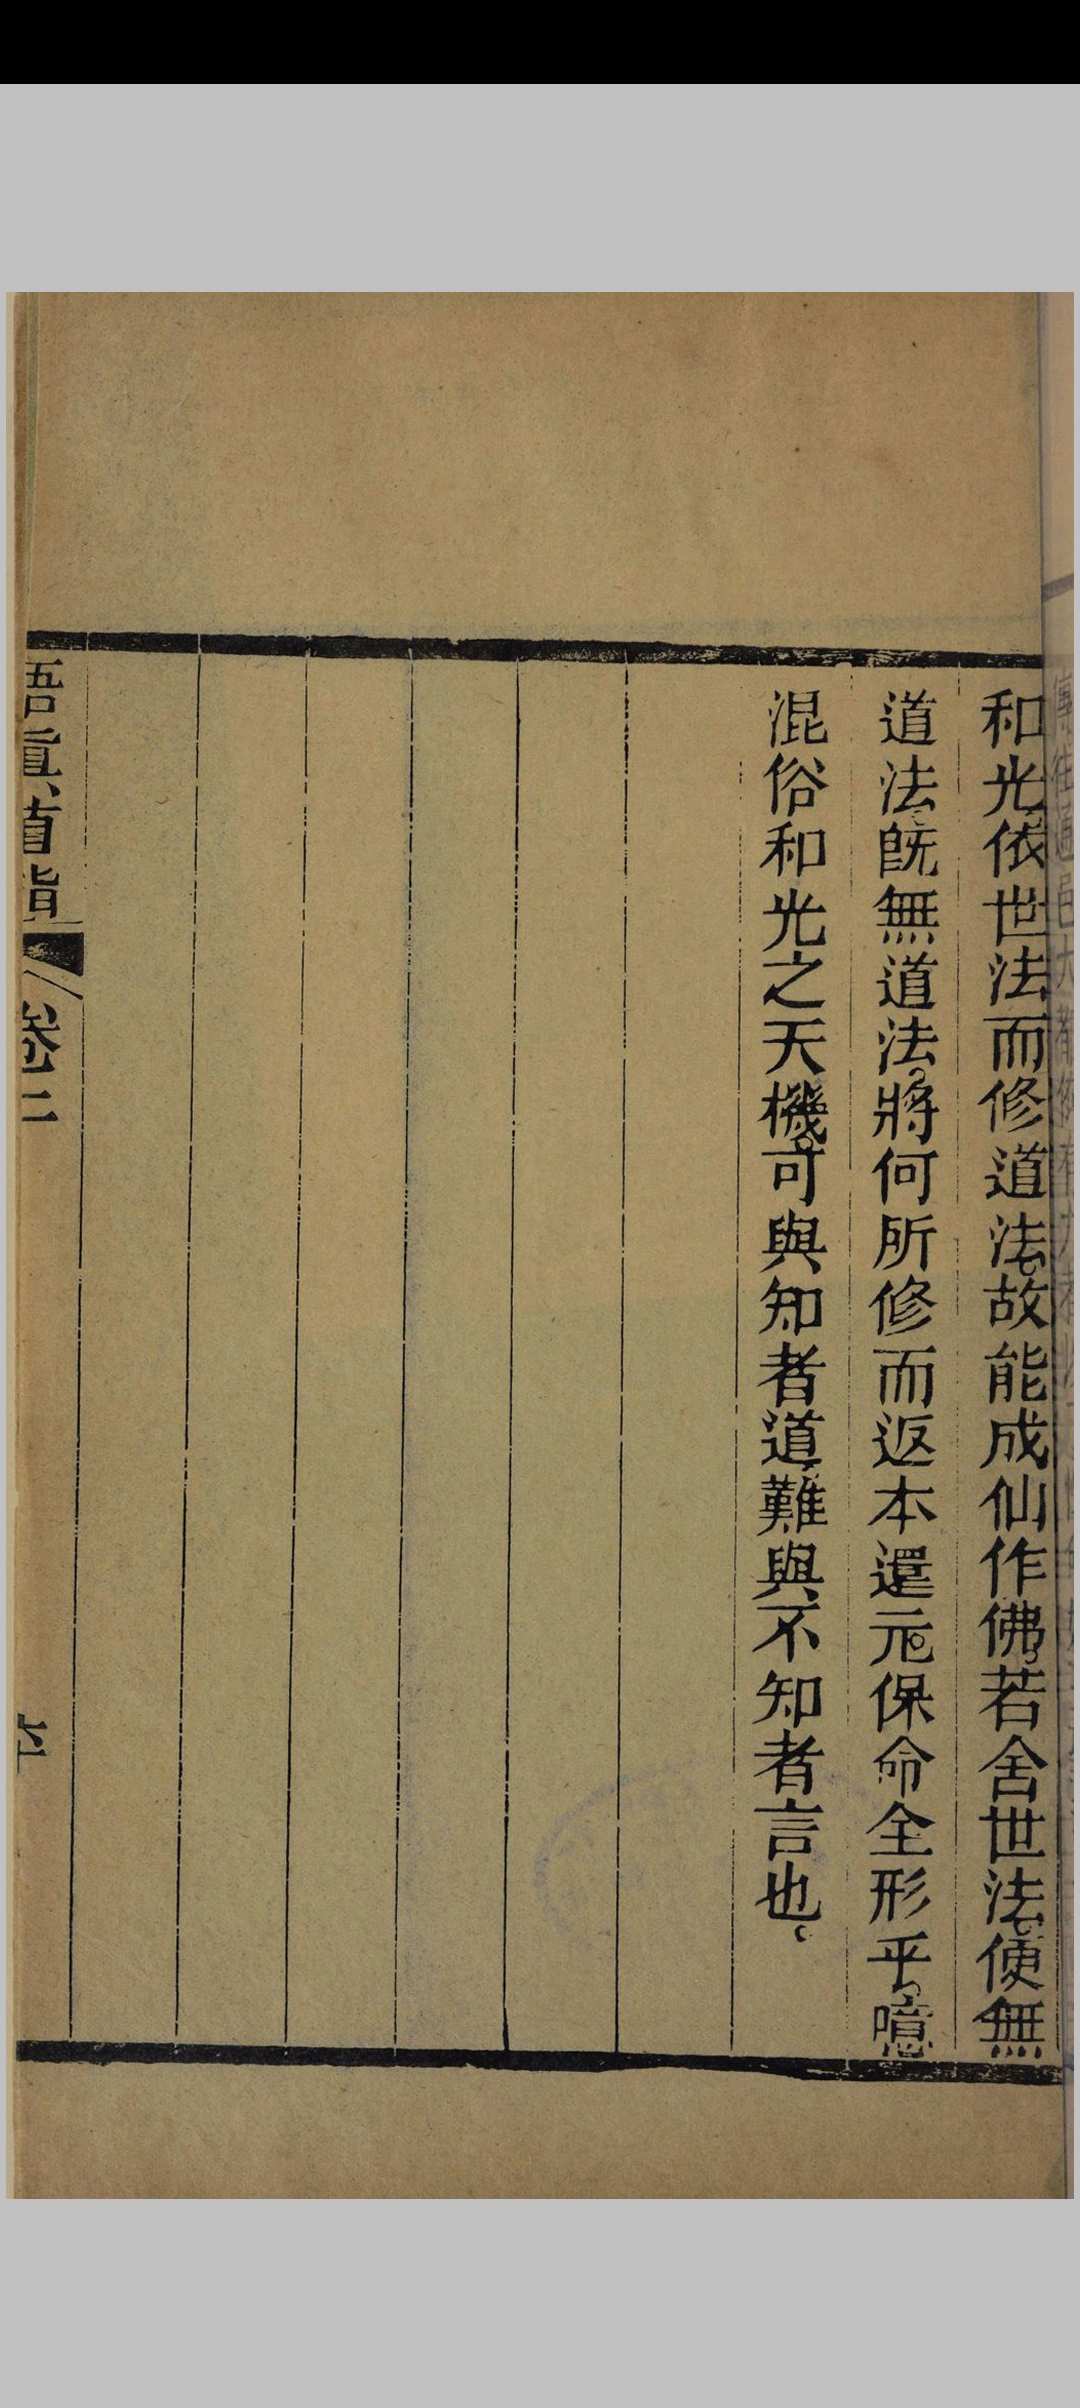 和光依世法而修道法故能成仙作佛若舍世法便無
道法旣無道法將何所修而返本還元保命全形乎噫
混俗和光之天機可與知者道難與不知者言也
悟真直指 卷二